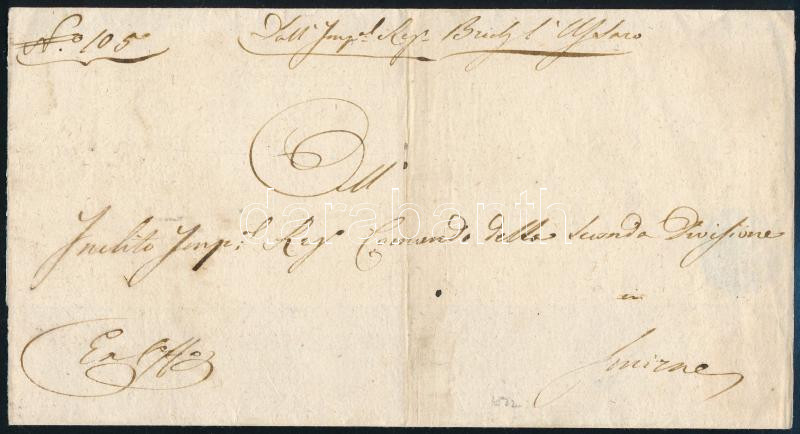 N.º 105
Dall' Imp.l Reg.o Brick l' Ussaro
All'
Inclito Imp.l Reg.o Comando della Seconda Divisione
in
Smirne
Ex Offo
darabanth